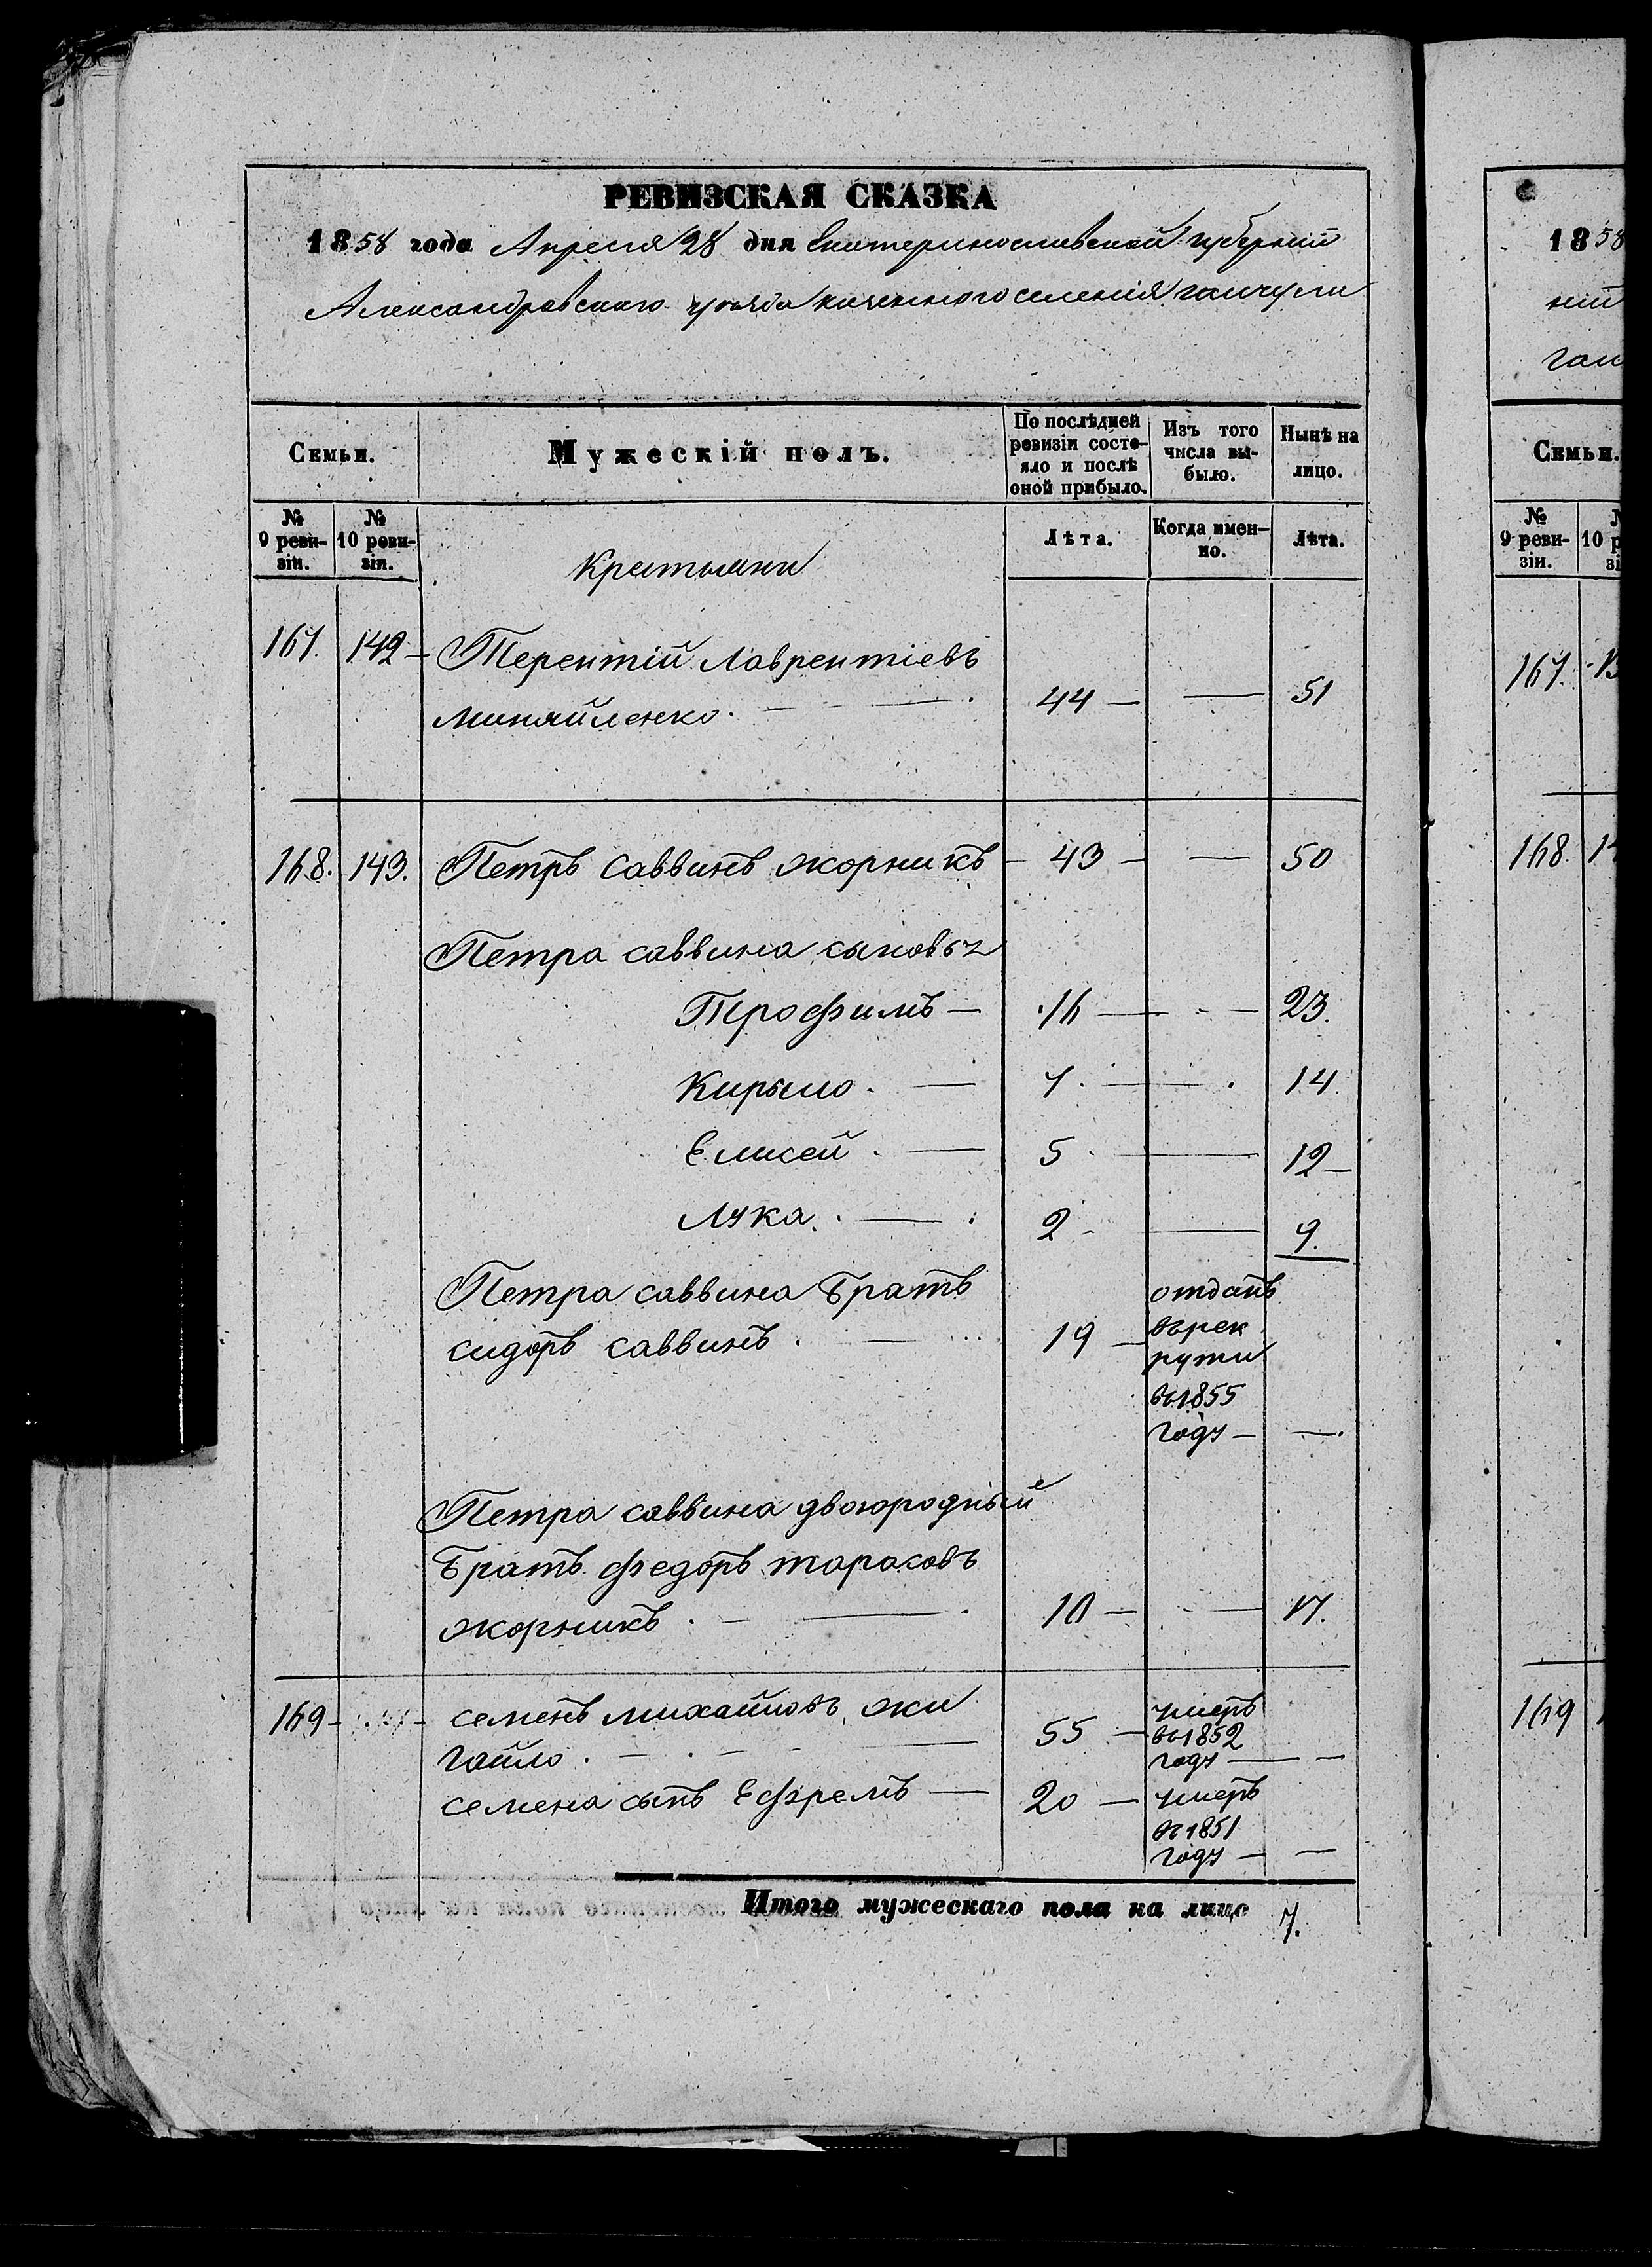 РЕВИЗСКАЯ СКАЗКА
1858 года Апреля 28 дня Екатеринославской губерний
Александровскаго уезда казенного селения гайчули
Семьи.
Мужескій полъ.
По послѣдней ревизіи состояло и послѣ оной прибыло.
Изъ того числа выбыло.
Нынѣ на лицо.
№ 9 ревизіи.
№ 10 ревизіи.
Лѣта.
Когда именно.
Лѣта.
Крестьяни
167. 142 Терентій Лаврентіевъ
Миняйленко. 44 — — 51
168. 143. Петръ Саввинъ жорникъ 43 — — 50
Петра саввина сыновьи
Трофимъ — 16 — — 23.
Кирыло. — 7. — 14.
Елисей. — 5. — 12
Лука. — 2 — 9.
Петра саввина братъ
сидоръ саввинъ. 19 — отданъ
въ рек
рути
въ 1855
году — —.
Петра саввина двоюродный
братъ федоръ тарасовъ
жорникъ. — 10 — — 17.
169 — семенъ михайловъ жи
гайло. — 55 — умеръ
въ 1852
году — —
семена сынъ Ефремъ — 20 — умеръ
въ 1851
году — —
Итого мужескаго пола на лицо 7.
1858
ний
гай
Семьи.
№ 9 ревизіи.
167.
168.
169